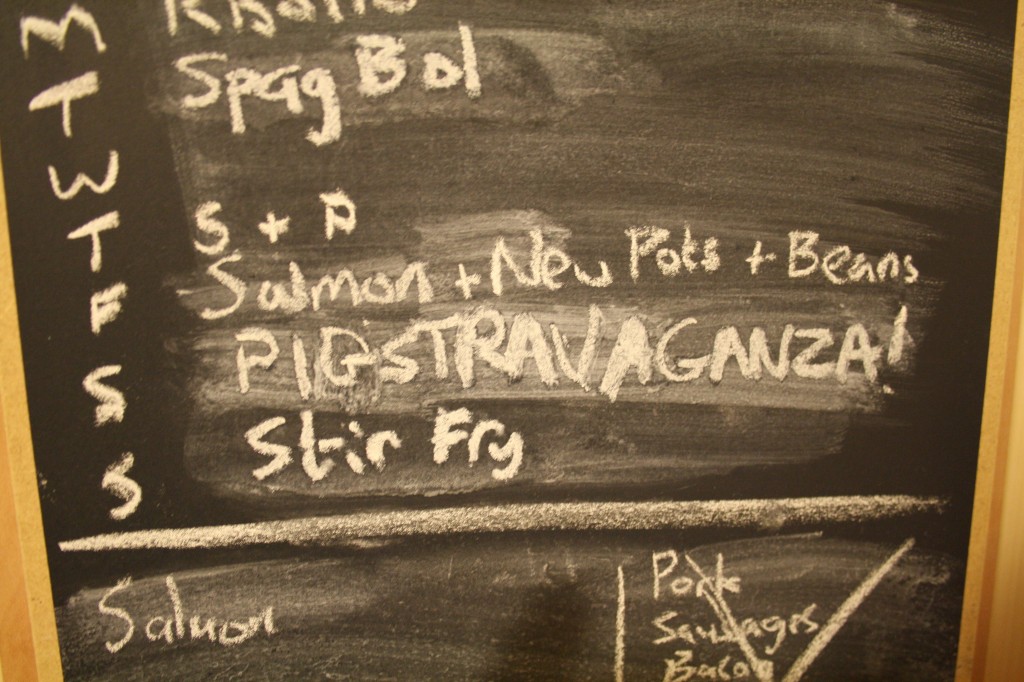 M
T Spag Bol
W
T S + P
F Salmon + New Pots + Beans
S PIGSTRAVAGANZA!
S Stir Fry
Salmon
Pork
Sausages
Bacon